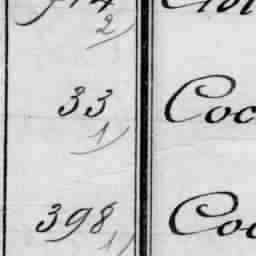 2)
33 Coc
1)
398 Coc
1)